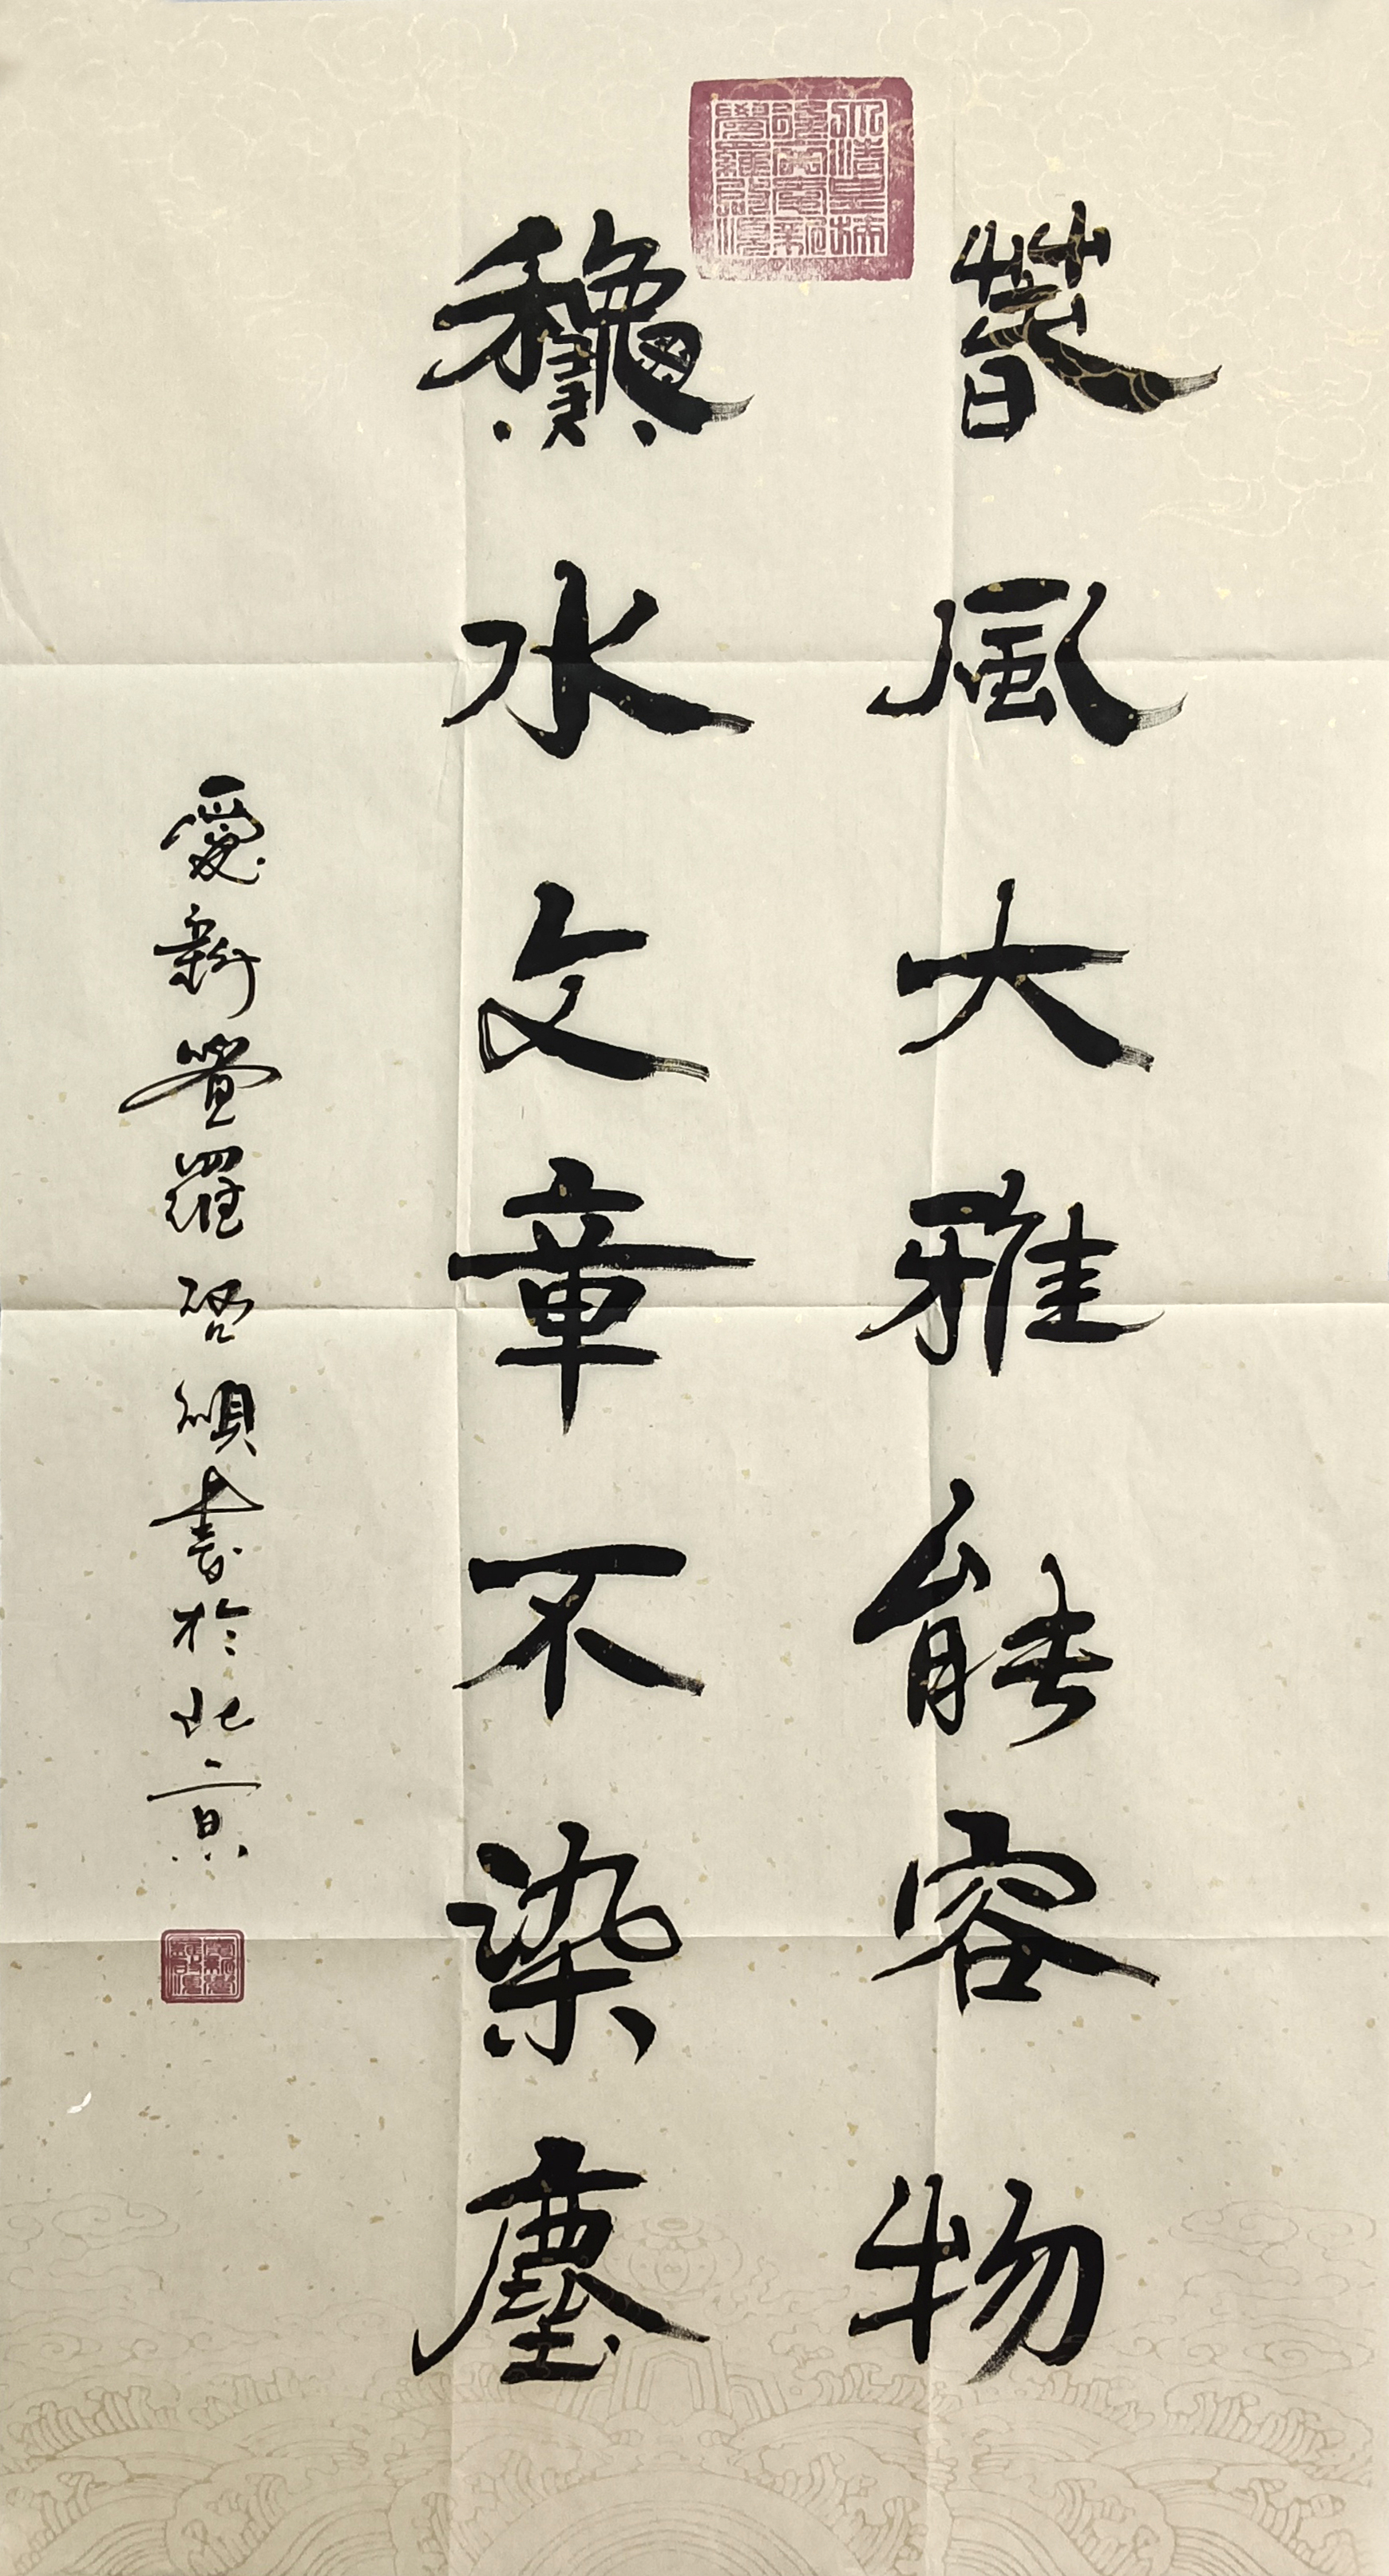 萅風大雅能容物
龝水文章不染塵
愛新覺羅啓順書於北京